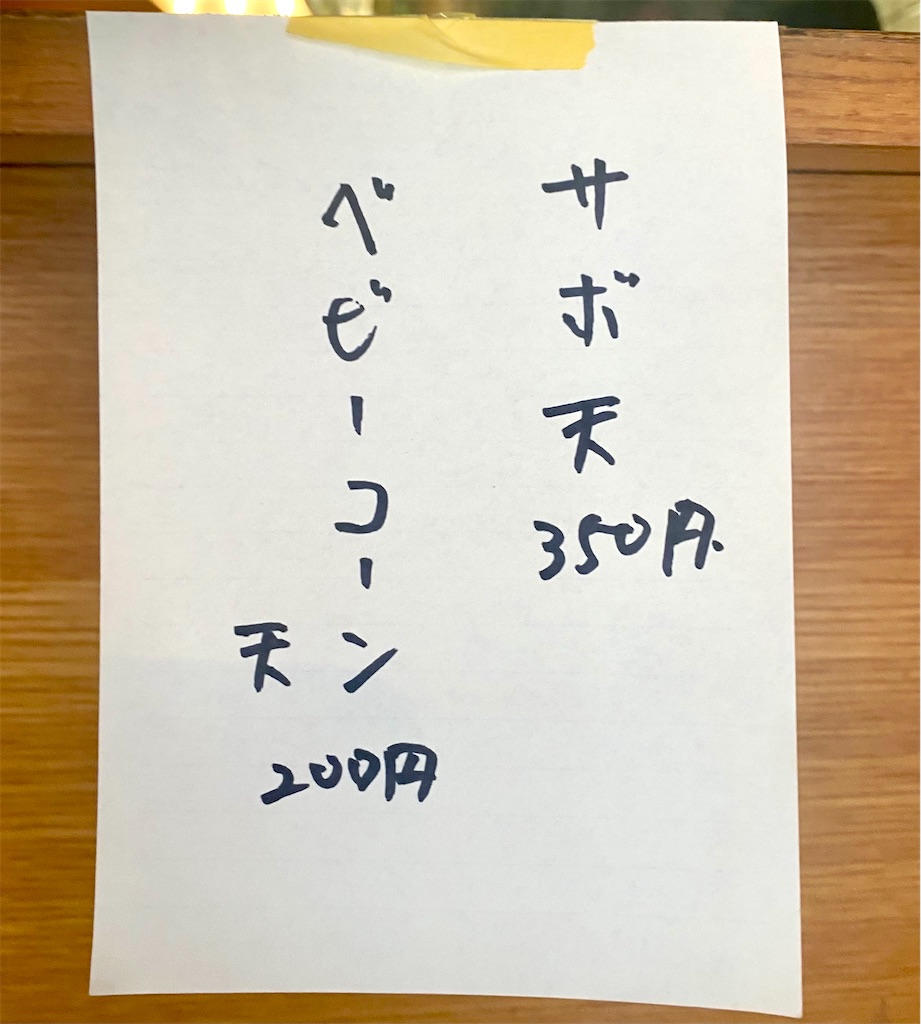 サボ天
350円
ベビーコーン
天
200円